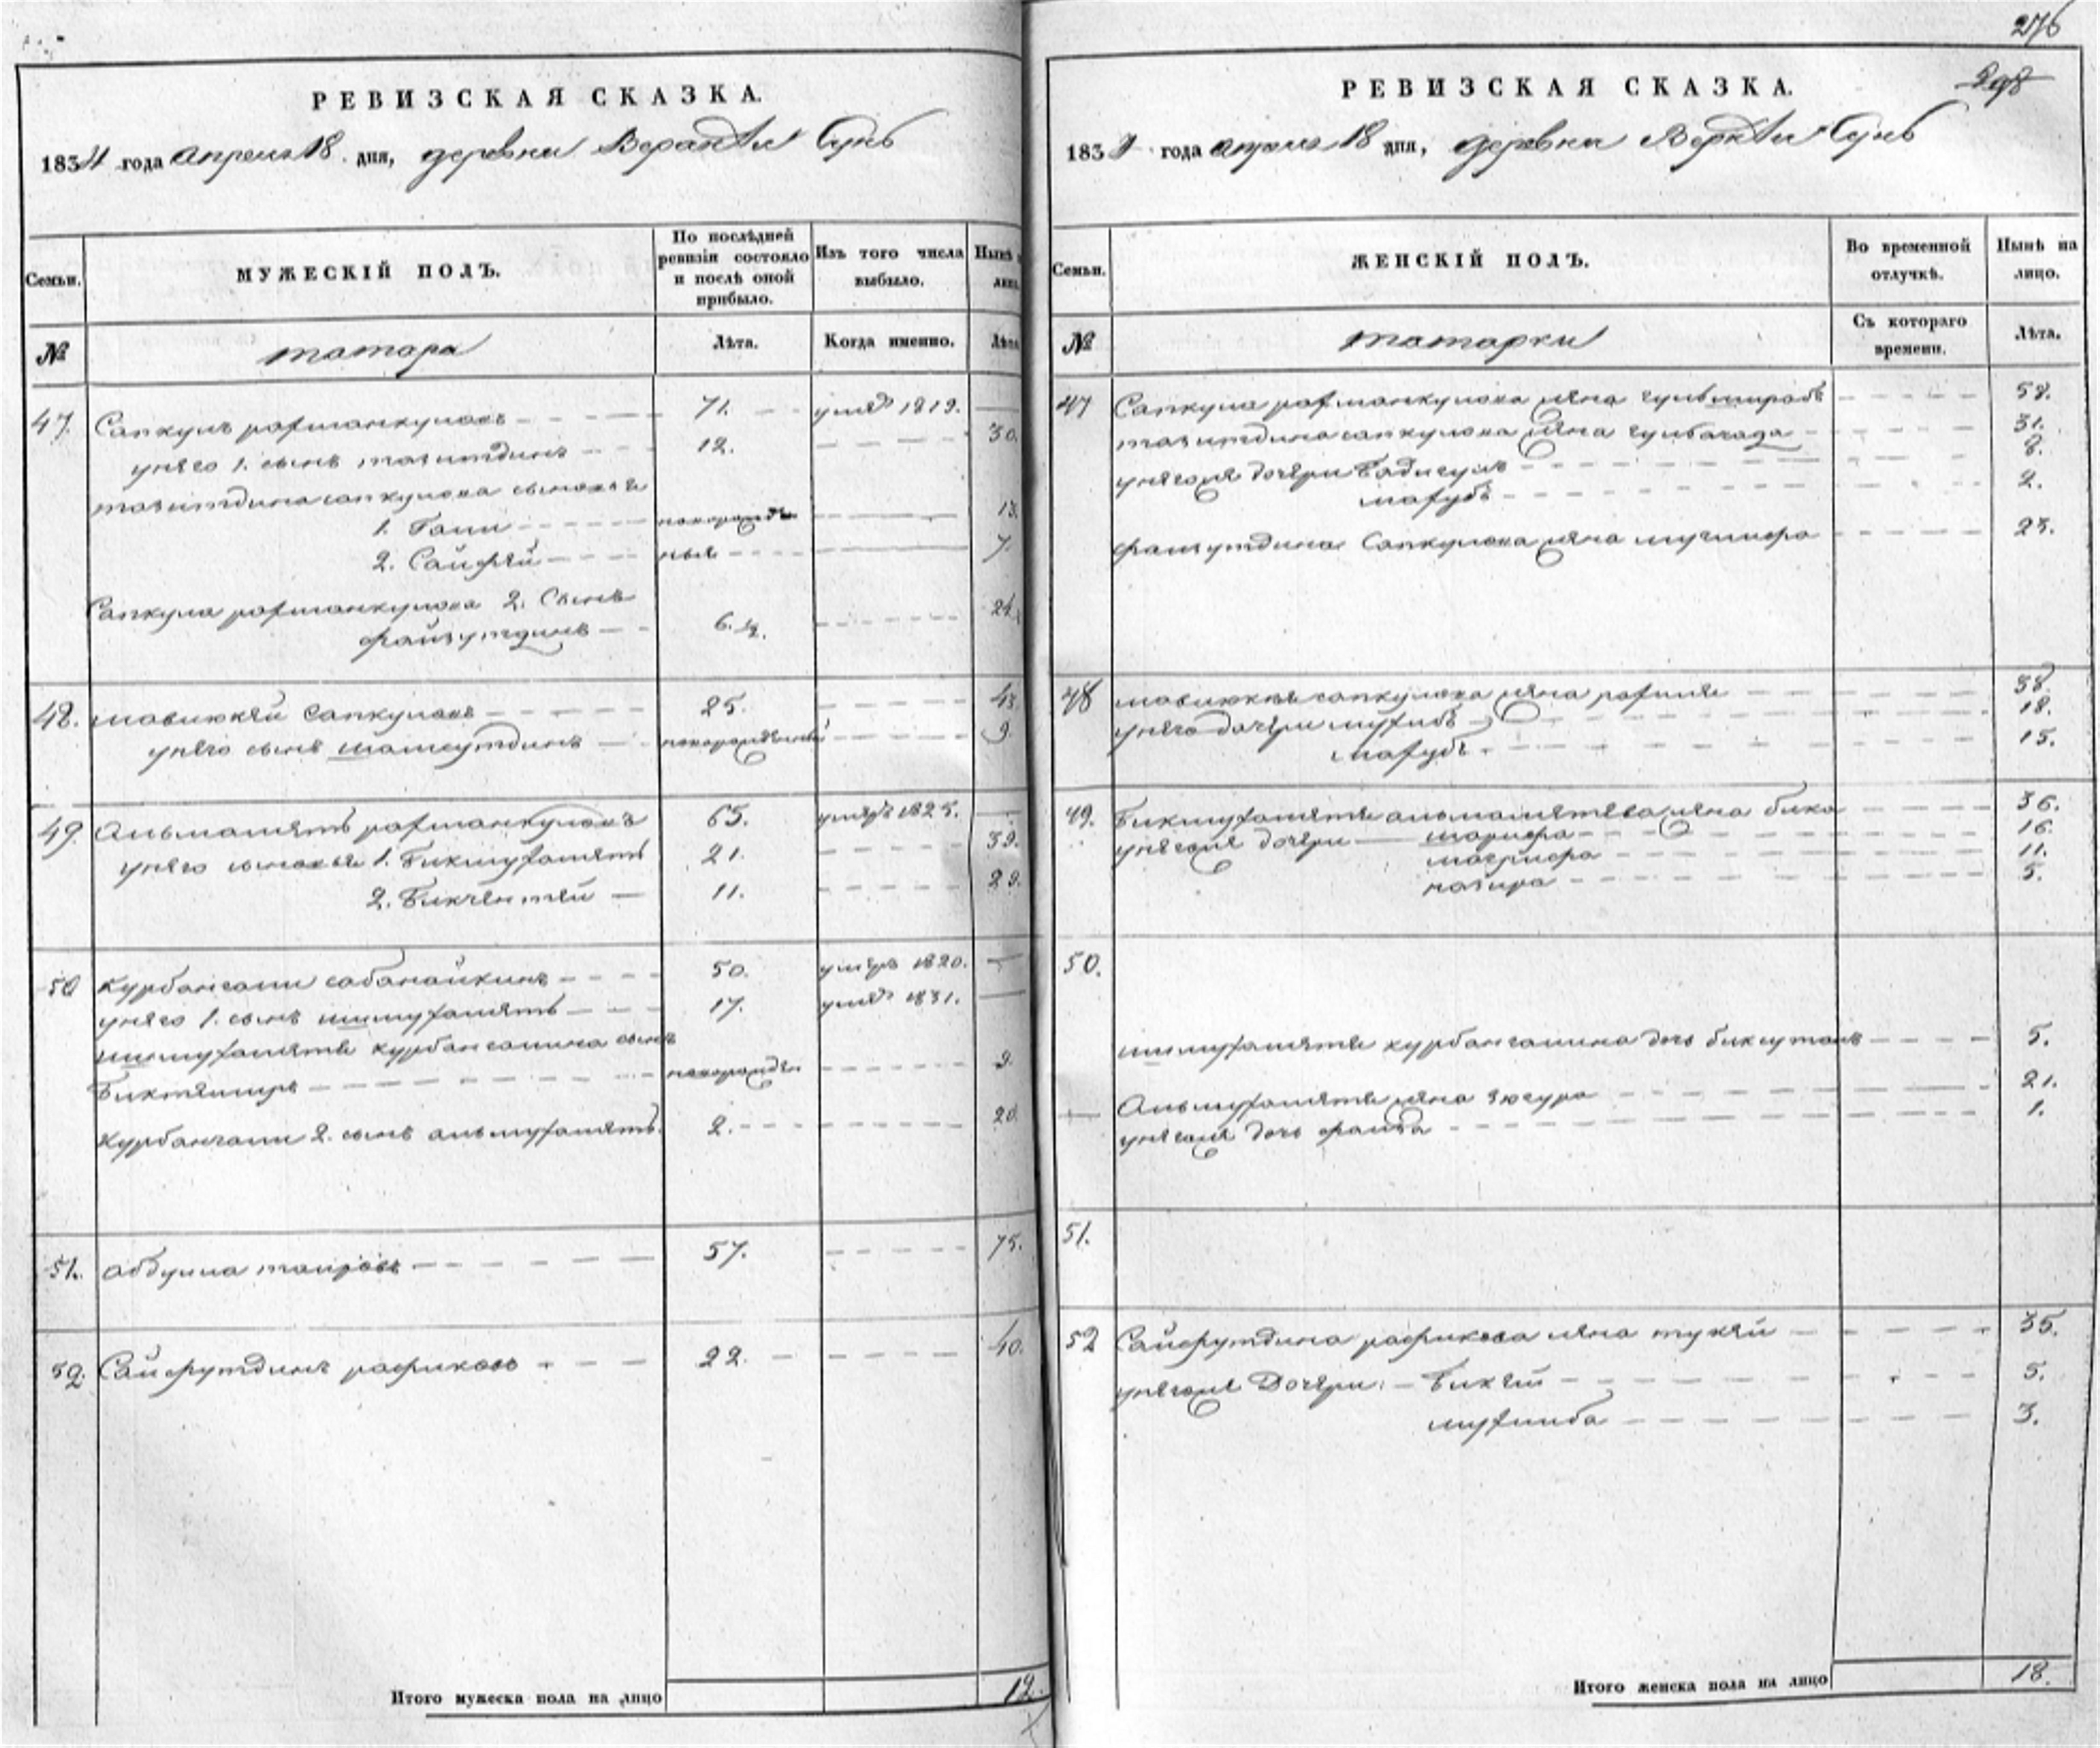 276
298
РЕВИЗСКАЯ СКАЗКА.
1834 года апреля 18 дня, деревни
Семьи.
МУЖЕСКІЙ ПОЛЪ.
По послѣдней ревизіи состояло и послѣ оной прибыло.
Изъ того числа выбыло.
Нынѣ
№
татара
Лѣта.
Когда именно.
Лѣта
47. Сапкулъ рахманкуловъ 71. умеръ 1819.
у него 1. сынъ тазитдинъ 12. 30.
тазитдина сапкулова сыновья
1. Гали новорожден 13.
2. Сайфяй ныя 7.
Сапкула рахманкулова 2. Сынъ
файзутдинъ 6. 1/2. 24
48. Сапкуловъ 25. 43
у него сынъ шамсутдинъ новорожденный 9.
49. Альмаметь рахманкуловъ 65. умеръ 1825.
у него сыновья 1. Бикмухаметь 21. 39.
2. Бикчентей 11. 29.
50 Курбангали сабанайкинъ 50. умеръ 1820.
у него 1. сынъ ишмухаметь 17. умеръ 1831.
ишмухаметя курбангалина сынъ
Биктямиръ новорожден 9.
Курбангали 2. сынъ альмухаметь. 2. 20.
51. Абдулла таировъ 57. 75.
52. Сайфутдинъ рафиковъ 22. 40.
Итого мужеска пола на лицо 12.
РЕВИЗСКАЯ СКАЗКА.
1834 года апреля 18 дня, деревни
Семьи.
ЖЕНСКІЙ ПОЛЪ.
Во временной отлучкѣ.
Нынѣ на лицо.
№
татарки
Съ котораго времени.
Лѣта.
47 Сапкула рахманкулова жена 58.
тазитдина сапкулова жена 31.
у него дочери Бадигулъ 8.
махубъ 2.
файзутдина Сапкулова жена 23.
48 сапкулова жена 38.
у него дочери 18.
махубъ 15.
49. Бикмухаметя альмаметева жена бика 36.
дочери 16.
11.
назира 5.
50.
ишмухаметя курбангалина дочь 5.
Альмухаметя жена зюгура 21.
дочь фаиза 1.
51.
52 Сайфутдина рафикова жена тукяй 35.
Дочери: Бикей 5.
3.
Итого женска пола на лицо 18.